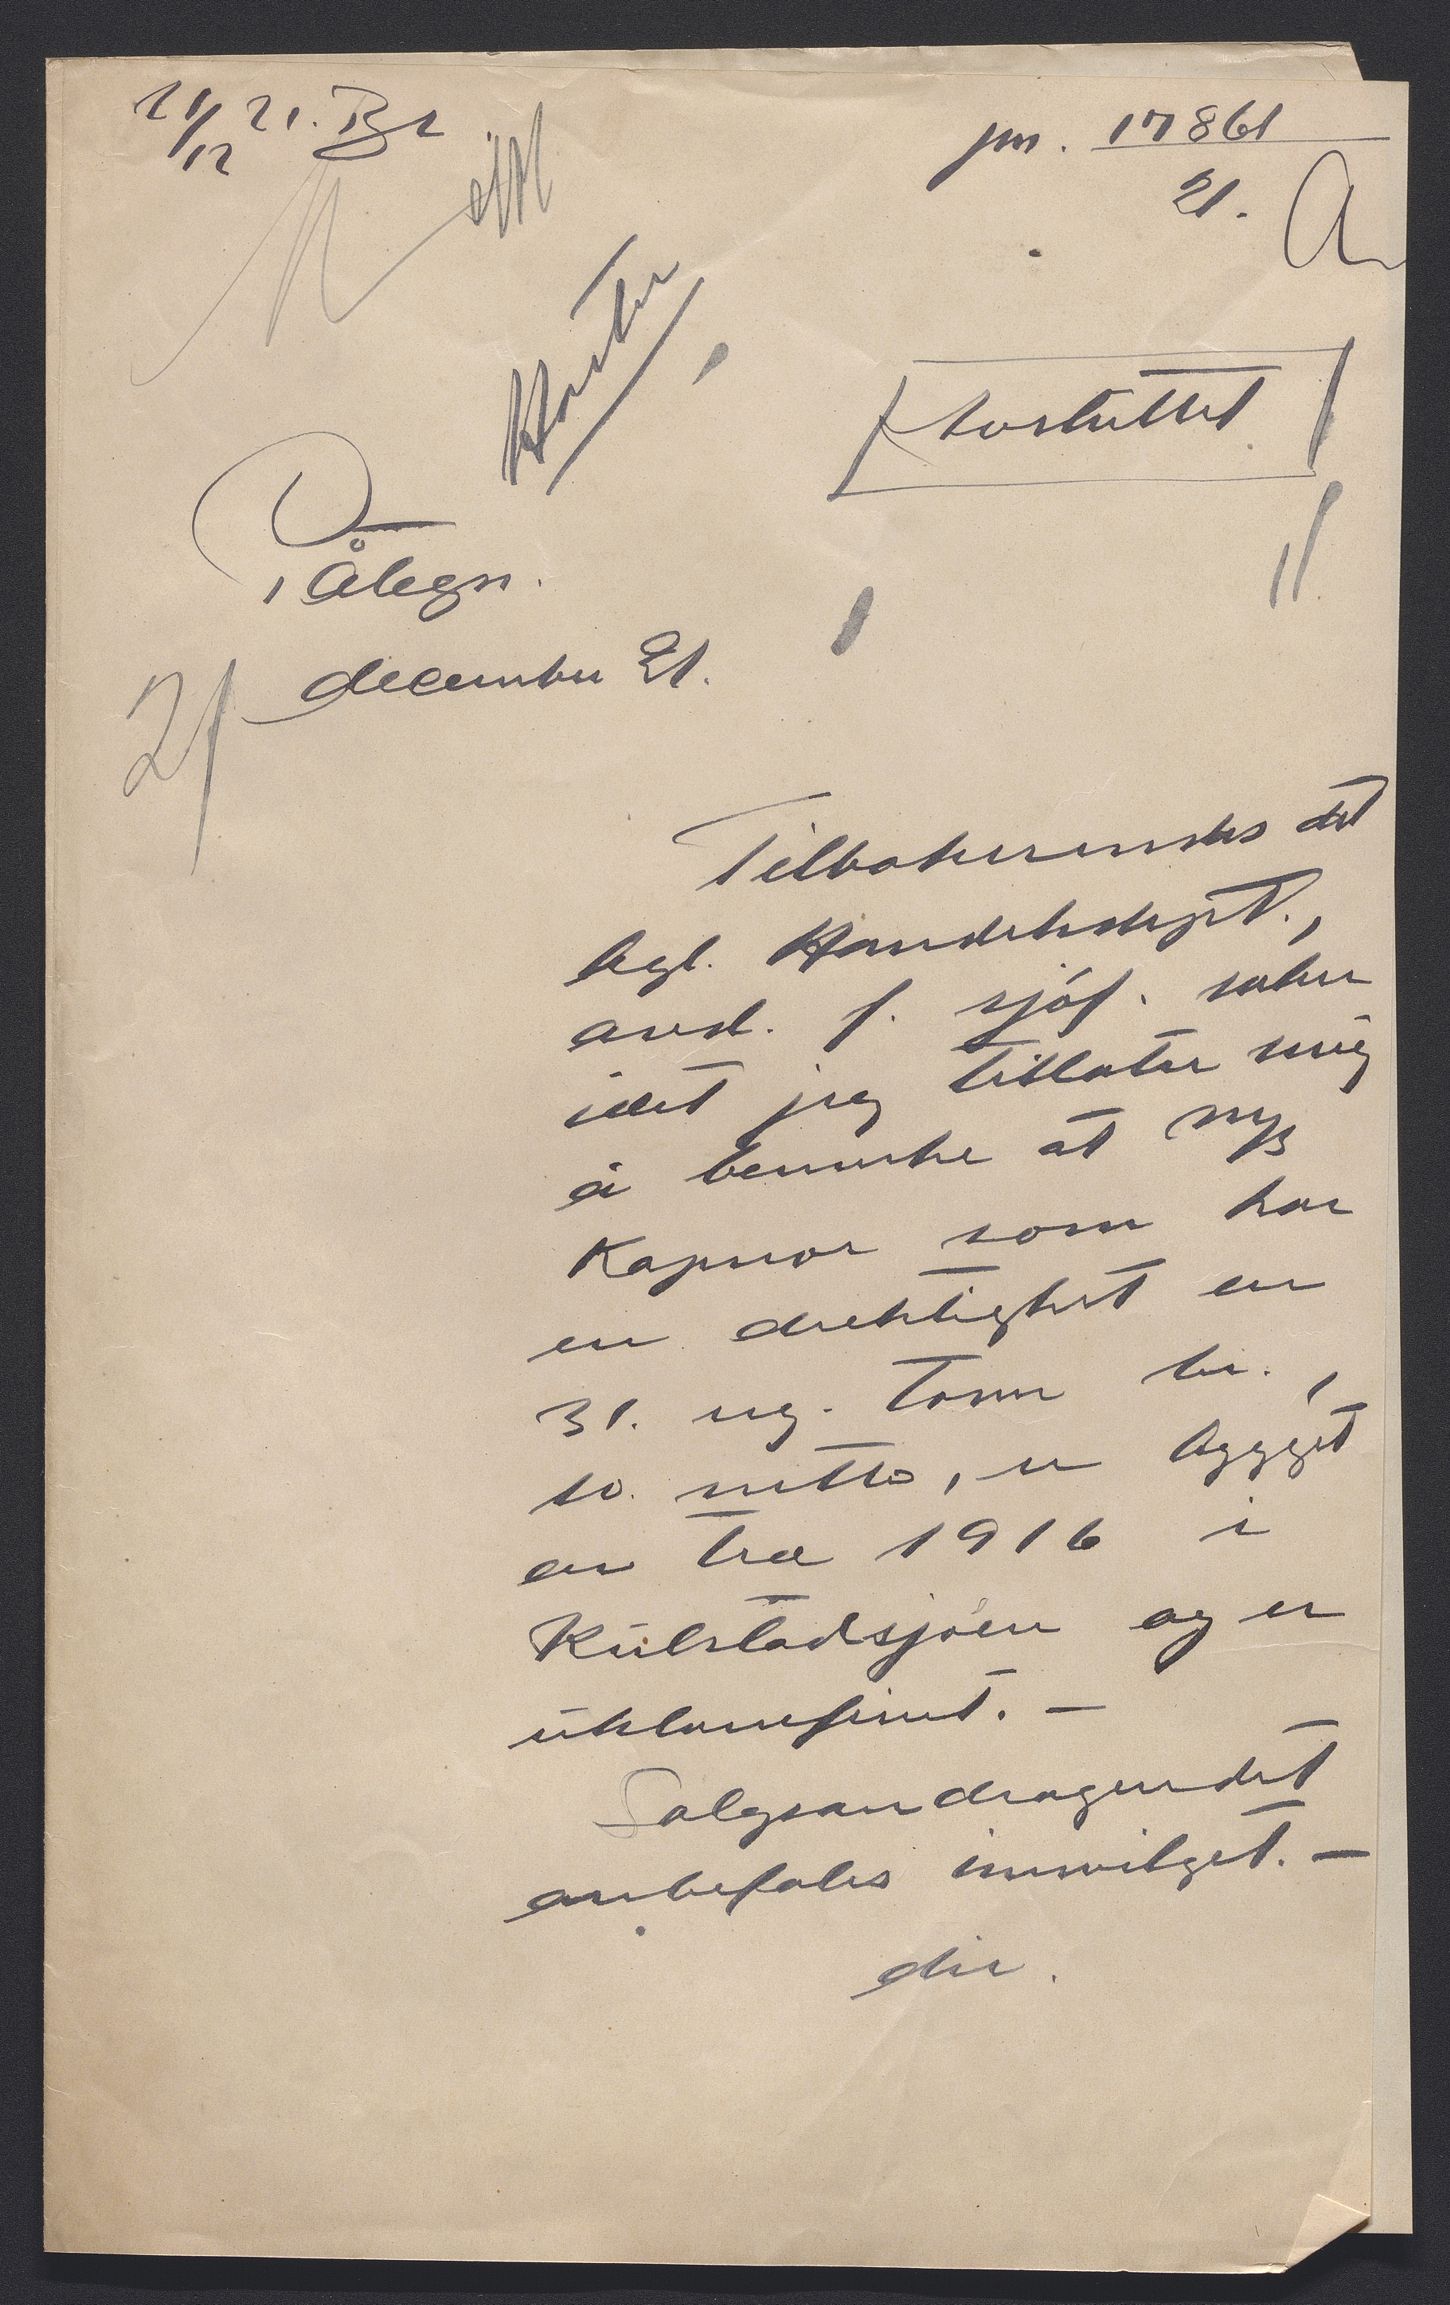 21/12 21. Br
jnr. 17861
21. A
Haster
Påtegn.
21 december 21.
Tilbakesendes det
kgl. Handelsdept.,
avd. f. sjøf. saker
idet jeg tillater mig
å bemerke at m/k
Kapnor som har
en drektighet av
31. reg. tonn br.,
10. netto, er bygget
av træ 1916 i
Kulstadsjøen og er
uklausulert. —
Salgsandragendet
anbefales innvilget. —
dir.